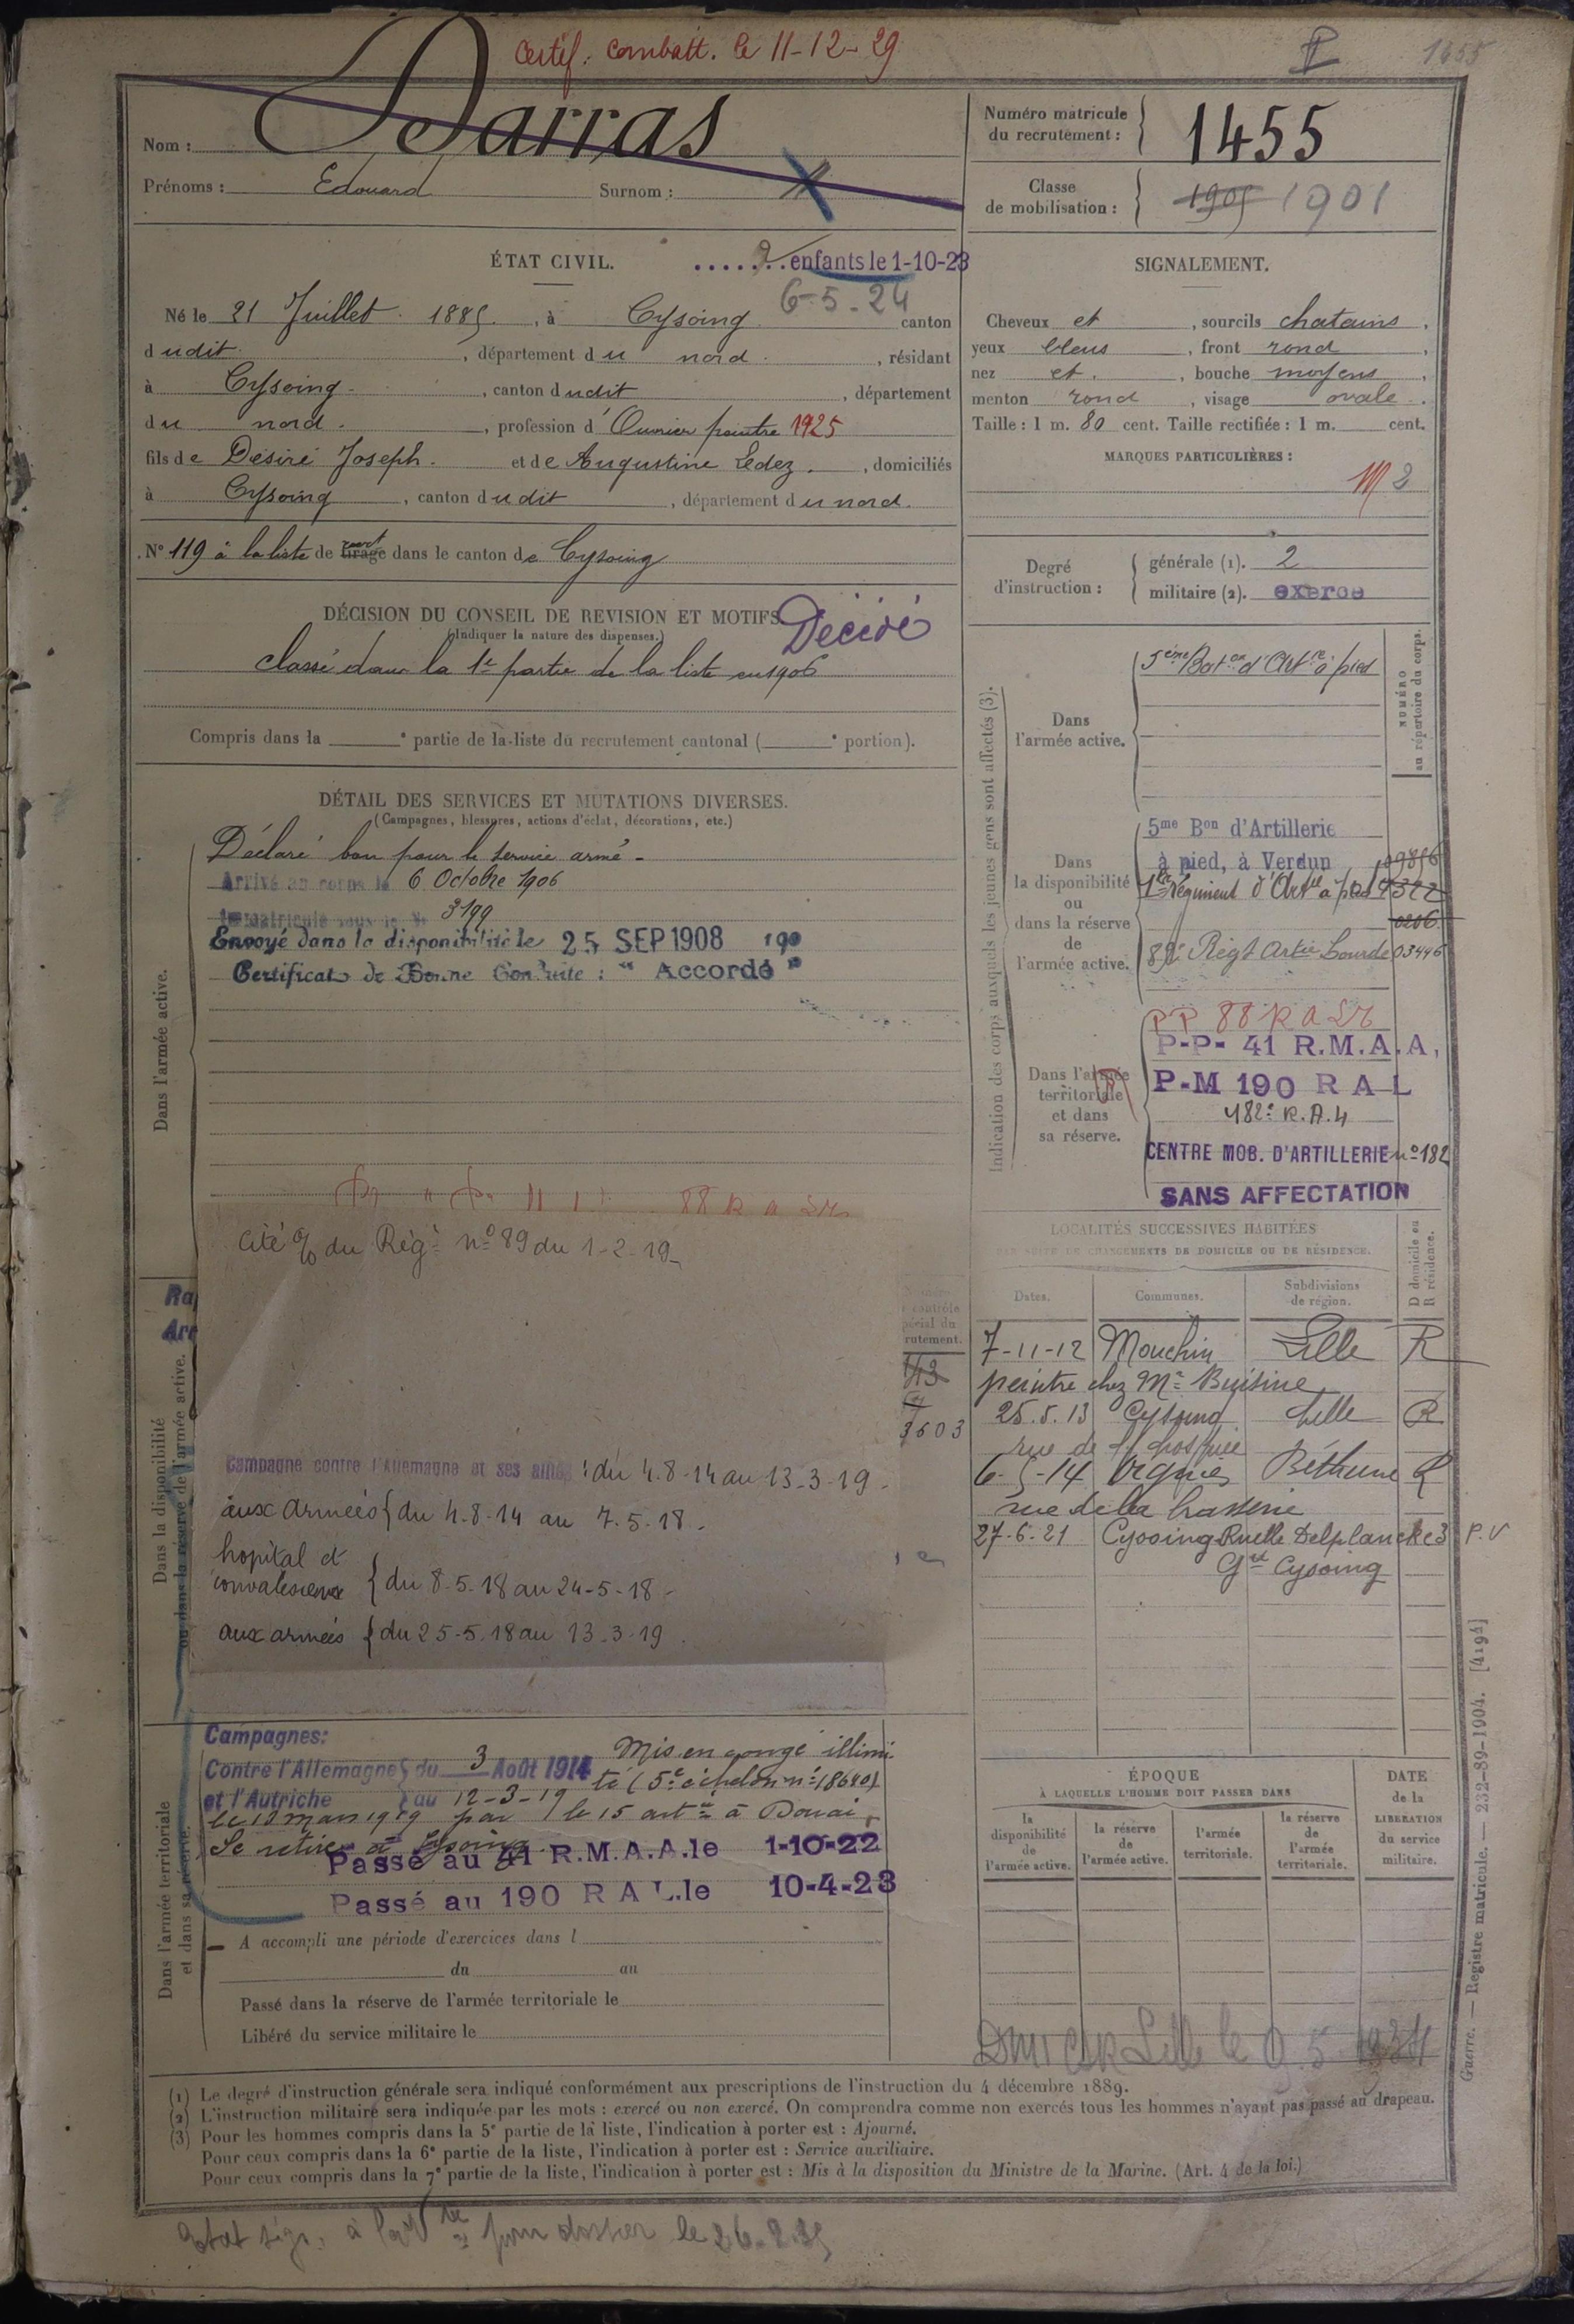 Certif. combatt. le 11-12-29
1455
Nom : Darras
Prénoms : Edouard Surnom :
Numéro matricule du recrutement : 1455
Classe de mobilisation : 1905 1901
ÉTAT CIVIL.
2 enfants le 1-10-23
6-5-24
Né le 21 Juillet 1885, à Cysoing canton
dudit, département du nord, résidant
à Cysoing, canton dudit, département
du nord, profession d'Ouvrier peintre 1925
fils de Désiré Joseph et de Augustine Ledez, domiciliés
à Cysoing, canton dudit, département du nord.
N° 119 à la liste de tirage dans le canton de Cysoing
SIGNALEMENT.
Cheveux et, sourcils chatains,
yeux bleus, front rond,
nez et, bouche moyens,
menton rond, visage ovale.
Taille : 1 m. 80 cent. Taille rectifiée : 1 m. cent.
MARQUES PARTICULIÈRES :
M 2
Degré d'instruction :
générale (1). 2
militaire (2). exercé
DÉCISION DU CONSEIL DE REVISION ET MOTIFS.
(Indiquer la nature des dispenses.)
Décédé
classé dans la 1e partie de la liste en 1906
Compris dans la e partie de la liste du recrutement cantonal ( e portion).
DÉTAIL DES SERVICES ET MUTATIONS DIVERSES.
(Campagnes, blessures, actions d'éclat, décorations, etc.)
Dans l'armée active.
Déclaré bon pour le service armé -
Arrivé au corps le 6 Octobre 1906
Immatriculé sous le N° 3199
Envoyé dans la disponibilité le 25 SEP 1908 190
Certificat de Bonne Conduite : "Accordé"
88 R A
cité o/o du Régt n° 89 du 1-2-19-
Dans la disponibilité
ou dans la réserve de l'armée active.
Ra
Arr
Campagne contre l'Allemagne et ses alliés : du 4-8-14 au 13-3-19 -
aux armées { du 4-8-14 au 7-5-18.
hopital et
convalescence { du 8-5-18 au 24-5-18 -
aux armées { du 25-5-18 au 13-3-19.
contrôle
rutement.
3603
Dans l'armée territoriale
et dans sa réserve.
Campagnes:
Contre l'Allemagne } du 3 Août 1914
et l'Autriche } au 12-3-19
Mis en congé illimi-
té (5e échelon n° 18680)
le 13 mars 1919 par le 15 artie à Douai,
Se retire à Cysoing.
Passé au 41 R.M.A.A. le 1-10-22
Passé au 190 R A L. le 10-4-23
A accompli une période d'exercices dans l
du au
Passé dans la réserve de l'armée territoriale le
Libéré du service militaire le
Indication des corps auxquels les jeunes gens sont affectés (3).
NUMÉRO
au répertoire du corps.
Dans l'armée active.
5ème Baton d'Artie à pied
Dans la disponibilité ou dans la réserve de l'armée active.
5me Bon d'Artillerie
à pied, à Verdun
1er Régiment d'Artie à pied
0206
Régt Artie Lourde 03446
Dans l'armée territoriale et dans sa réserve.
PP 88 R A
P-P- 41 R.M.A.A,
P-M 190 R A L
182e R.A.
CENTRE MOB. D'ARTILLERIE n° 182
SANS AFFECTATION
LOCALITÉS SUCCESSIVES HABITÉES
PAR SUITE DE CHANGEMENTS DE DOMICILE OU DE RÉSIDENCE.
Dates. Communes. Subdivisions de région. D domicile ou R résidence.
7-11-12 Mouchin Lille R
peintre chez Mr Buisine
25.5.13 Cysoing Lille R
rue de l'hospice
6-5-14 Oignies Béthune R
rue de la brasserie
27-6-21 Cysoing Ruelle Delplancke 3 P.V
Gd Cysoing
ÉPOQUE
À LAQUELLE L'HOMME DOIT PASSER DANS
DATE de la LIBÉRATION du service militaire.
la disponibilité de l'armée active.
la réserve de l'armée active.
l'armée territoriale.
la réserve de l'armée territoriale.
Lille le
Guerre. — Registre matricule. — 232-89-1904. [4194]
(1) Le degré d'instruction générale sera indiqué conformément aux prescriptions de l'instruction du 4 décembre 1889.
(2) L'instruction militaire sera indiquée par les mots : exercé ou non exercé. On comprendra comme non exercés tous les hommes n'ayant pas passé au drapeau.
(3) Pour les hommes compris dans la 5e partie de la liste, l'indication à porter est : Ajourné.
Pour ceux compris dans la 6e partie de la liste, l'indication à porter est : Service auxiliaire.
Pour ceux compris dans la 7e partie de la liste, l'indication à porter est : Mis à la disposition du Ministre de la Marine. (Art. 4 de la loi.)
Etat sign. à pour dossier le